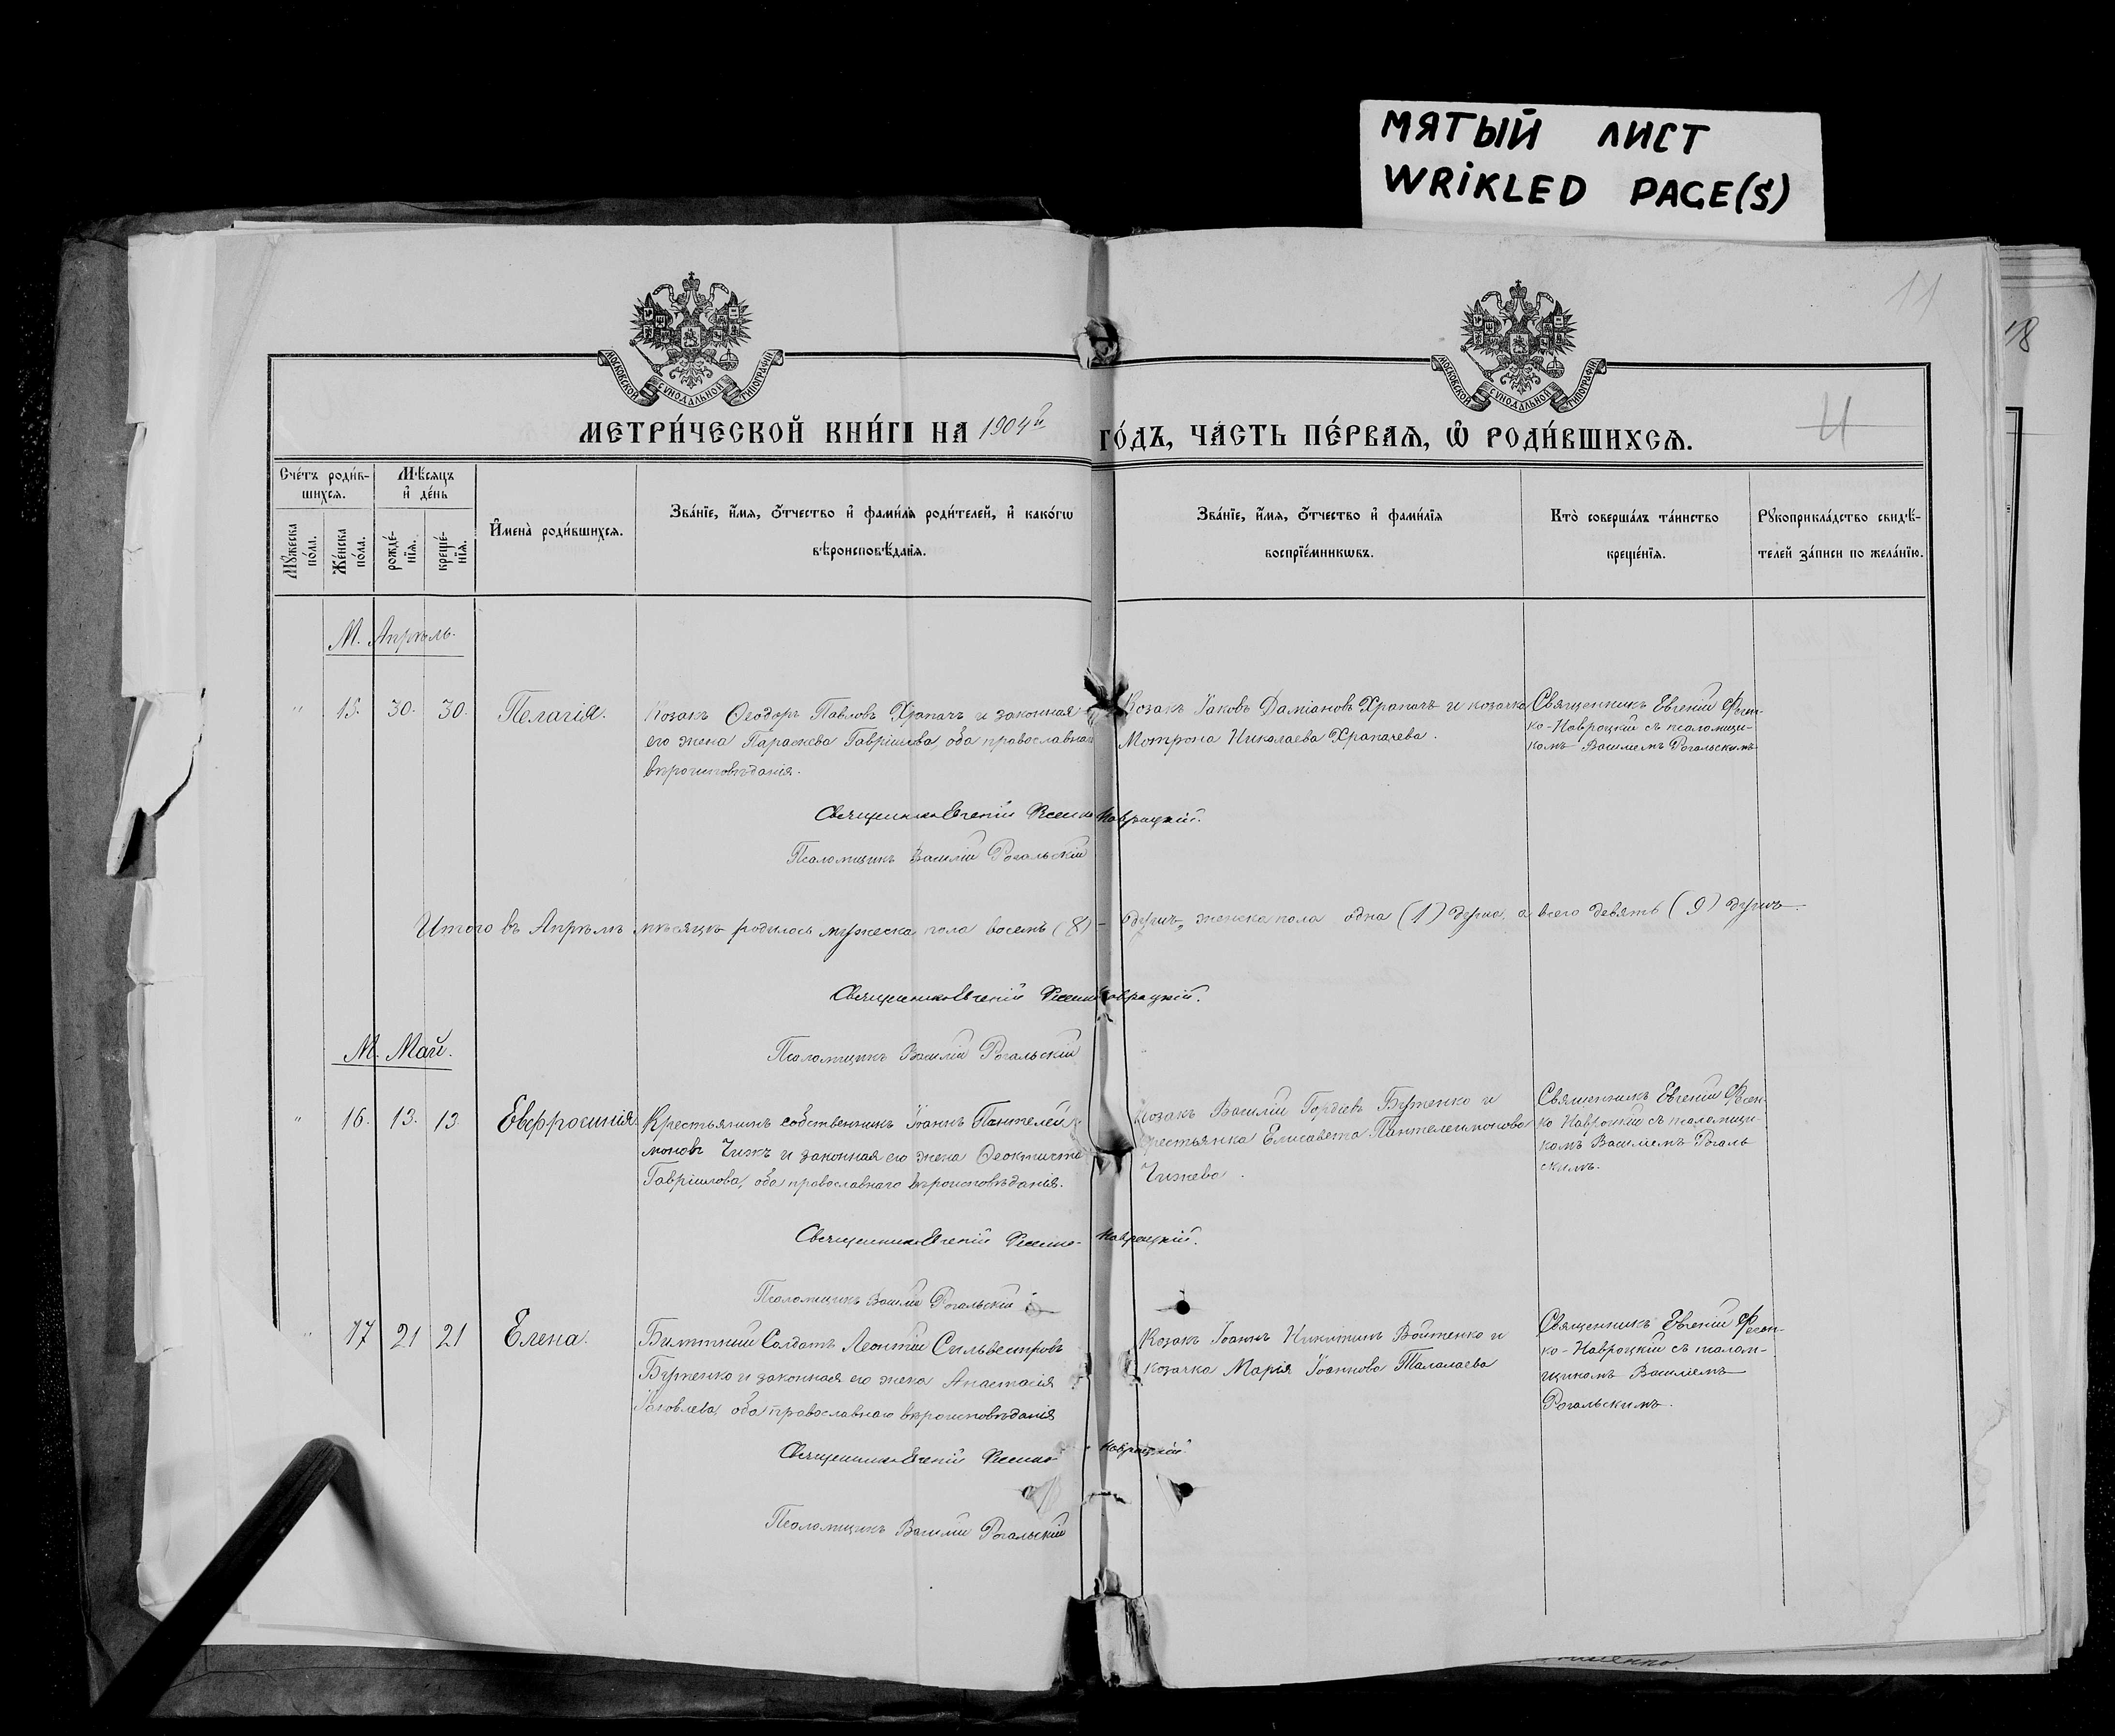 МЯТЫЙ ЛИСТ
WRIKLED PAGE(S)
11
18
МОСКОВСКОЙ СѴНОДАЛЬНОЙ ТИПОГРАФІИ
МОСКОВСКОЙ СѴНОДАЛЬНОЙ ТИПОГРАФІИ
МЕТРИ́ЧЕСКОЙ КНИ́ГИ НА 1904й ГО́ДЪ, ЧА́СТЬ ПЕ́РВАѦ, Ѽ РОДИ́ВШИХСѦ.
Сче́тъ роди́в-
шихсѧ.
Мѣ́сѧцъ
и҆ де́нь
Мꙋ́жеска
по́ла.
Же́нска
по́ла.
рожде́-
нїѧ.
креще́-
нїѧ.
И҆мена̀ роди́вшихсѧ.
Зва́нїе, и҆́мѧ, о҆́тчество и҆ фами́лїѧ роди́телей, и҆ како́гѡ
вѣроисповѣ́данїѧ.
Зва́нїе, и҆́мѧ, о҆́тчество и҆ фами́лїѧ
воспрїе́мникѡвъ.
Кто̀ соверша́лъ та́инство
креще́нїѧ.
Рꙋкоприкла́дство свидѣ́-
телей за́писи по жела́нїю.
М. Апрѣль.
" 15. 30. 30. Пелагія.
Козакъ Ѳеодоръ Павловъ Храпачъ и законная
его жена Параскева Гавріилова, оба православнаго
вѣроисповѣданія.
Козакъ Іаковъ Даміановъ Храпачъ и козачка
Мотрона Николаева Храпачева.
Священникъ Евгеній Фесен-
ко-Навроцкій съ псаломщи-
комъ Василіемъ Рогальскимъ
Священникъ Евгеній Фесенко Навроцкій.
Псаломщикъ Василій Рогальскій
Итого въ Апрѣлѣ мѣсяцѣ родилось мужеска пола восемь (8) душъ, женска пола одна (1) душа, а всего девять (9) душъ.
Священникъ Евгеній Фесенко Навроцкій.
Псаломщикъ Василій Рогальскій
М. Май.
" 16. 13. 13 Евфросинія.
Крестьянинъ собственникъ Іоаннъ Пантелей-
моновъ Чижъ и законная его жена Ѳеоктиста
Гавріилова, оба православнаго вѣроисповѣданія.
Козакъ Василій Гордіевъ Бутенко и
крестьянка Елисавета Пантелеимонова
Чижева.
Священникъ Евгеній Фесен-
ко Навроцкій съ псаломщи-
комъ Василіемъ Рогаль
скимъ.
Священникъ Евгеній Фесенко-Навроцкій.
Псаломщикъ Василій Рогальскій
" 17 21 21 Елена.
Солдатъ Леонтій Сильвестровъ
Бутенко и законная его жена Анастасія
Іаковлева, оба православнаго вѣроисповѣданія
Козакъ Іоаннъ Никитинъ Войтенко и
козачка Марія Іоаннова Талалаева
Священникъ Евгеній Фесен-
ко-Навроцкій съ псалом-
щикомъ Василіемъ
Рогальскимъ.
Священникъ Евгеній Фесенко-Навроцкій.
Псаломщикъ Василій Рогальскій